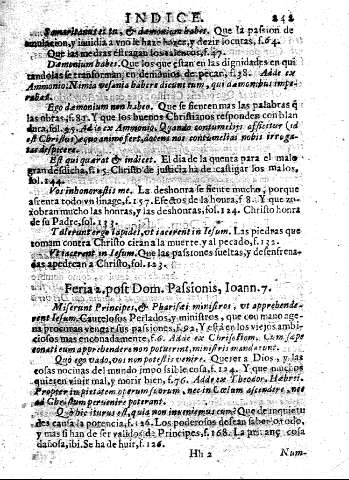 INDICE. 242
Samaritanus es tu, & dæmonium habes. Que la passion de
emulacion, y inuidia a vno le haze hazer, y dezir locuras, f.64.
Que las medras estragan los talentos, f.47.
Dæmonium habes. Que los que estan en las dignidades en qui
tandolas se transforman en demonios de pecar, f.38. Adde ex
Ammonio: Nimia vesania habere dicuntum, qui dæmonibus impe-
Ego dæmonium non habeo. Que se sienten mas las palabras q̃
las obras, f.81. Y que los buenos Christianos responden con blan
dura, fol.95. Adde ex Ammonio, Quando contumelijs afficitur (id
est Christus) æquo animo fert, docens nos contumelias nobis irroga-
tas despicere.
Est qui quærat & indicet. El dia de la quenta para el malo
gran desdicha, f.15. Christo de justicia ha de castigar los malos,
fol.144.
Vos inhonorastis me. La deshonra se siente mucho, porque
afrenta todo vn linage, f.157. Efectos de la honra, f.8. Y que zo
zobran mucho las honras, y las deshonras, fol.124. Christo honra
de su Padre, fol.133.
Tulerunt ergo lapides, vt iacerent in Iesum. Las piedras que
tomam contra Christo tiran a la muerte, y al pecado, f.132.
Vt iacerent in Iesum. Que las passiones sueltas, y desenfrena-
das apedrean a Christo, fol.123.
Feria 2. post Dom. Passionis, Ioann. 7.
Miserunt Principes, & Pharisæi ministros, vt apprehende-
rent Iesum. Cautelosos Perlados, y ministros, que con mano age-
na procuran vengar sus passiones, f.92. Y està en los viejos ambi-
ciosos mas enconadamente, f.6. Adde ex Chrisostom. Cum sæpe
conati eum apprehendere non potuerint, ministris mandarunt.
Quò ego vado, vos non potestis venire. Querer a Dios, y las
cosas nocivas del mundo impossible cosa, f.124. Y que muchos
quieren viuir mal, y morir bien, f.76. Adde ex Theodor. Hebrei.
Propter impietatem operum suorum, nec in Cœlum ascendere, nec
ad Christum peruenire poterant.
Quò hic iturus est, quia non inueniemus eum? Que de inquietu
des causa la potencia, f.126. Los poderosos desean saberlo todo,
y mas si han de ser validos de Principes, f.168. La priuanç cosa
dañosa, ibi. Se ha de huir, f.126.
Hh 2 Num-